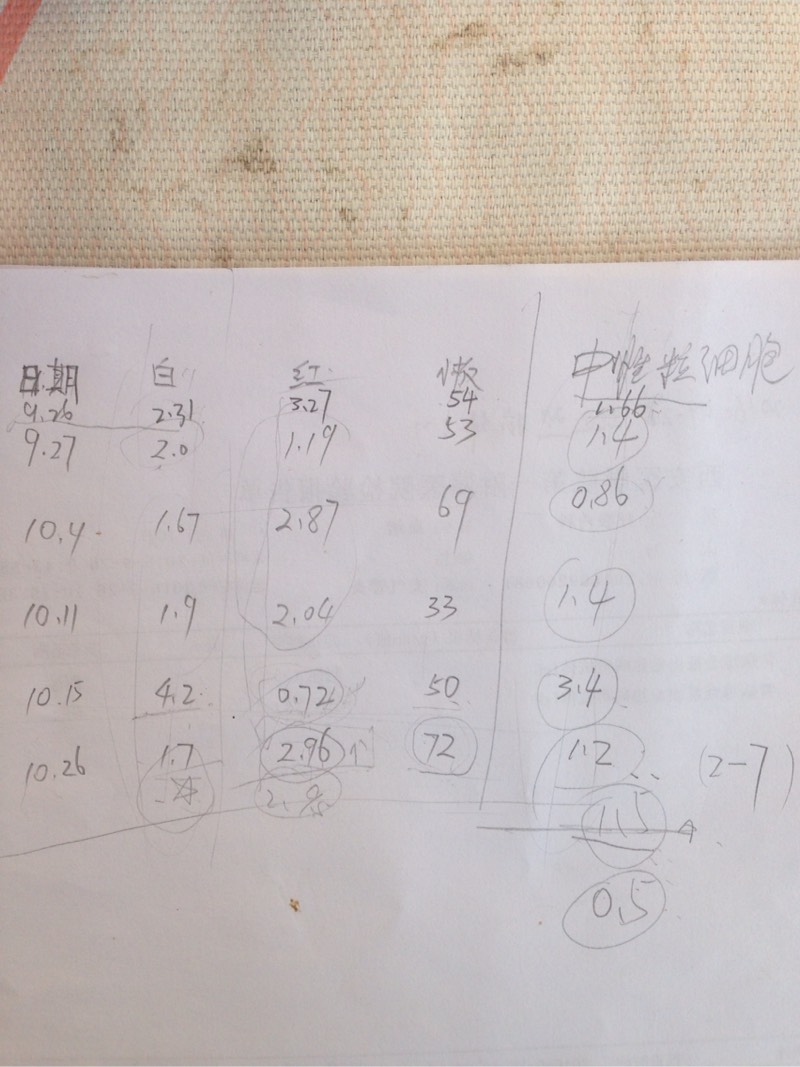 日期 白 红 板 中性粒细胞
9.26 2.31 3.27 54 1.66
9.27 2.0 1.19 53 1.4
10.4 1.67 2.87 69 0.86
10.11 1.9 2.04 33 1.4
10.15 4.2 0.72 50 3.4
10.26 1.7 2.96 个 72 1.2 (2-7)
1.5
0.5